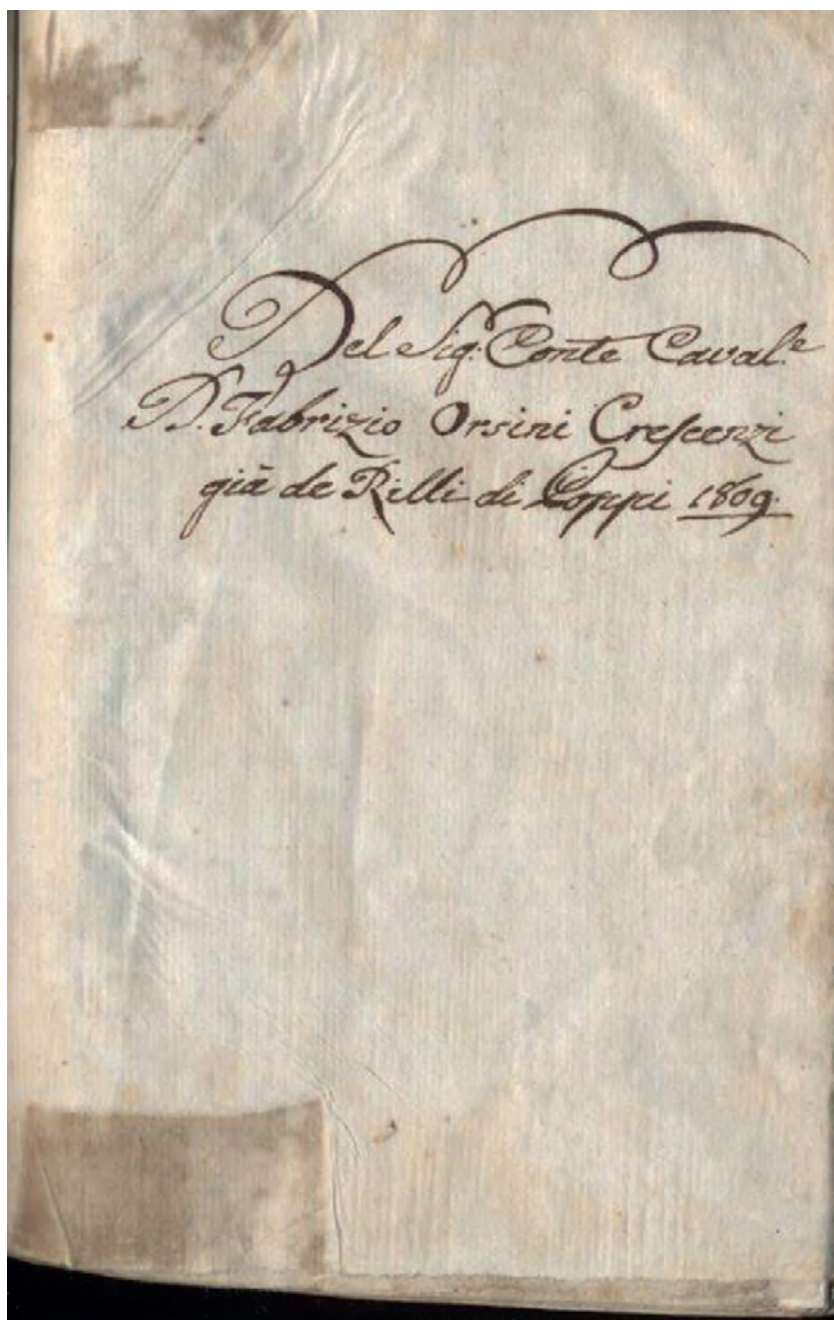 Del Sig: Conte Caval.e
D. Fabrizio Orsini Crescenzi
già de Rilli di Poppi 1809.